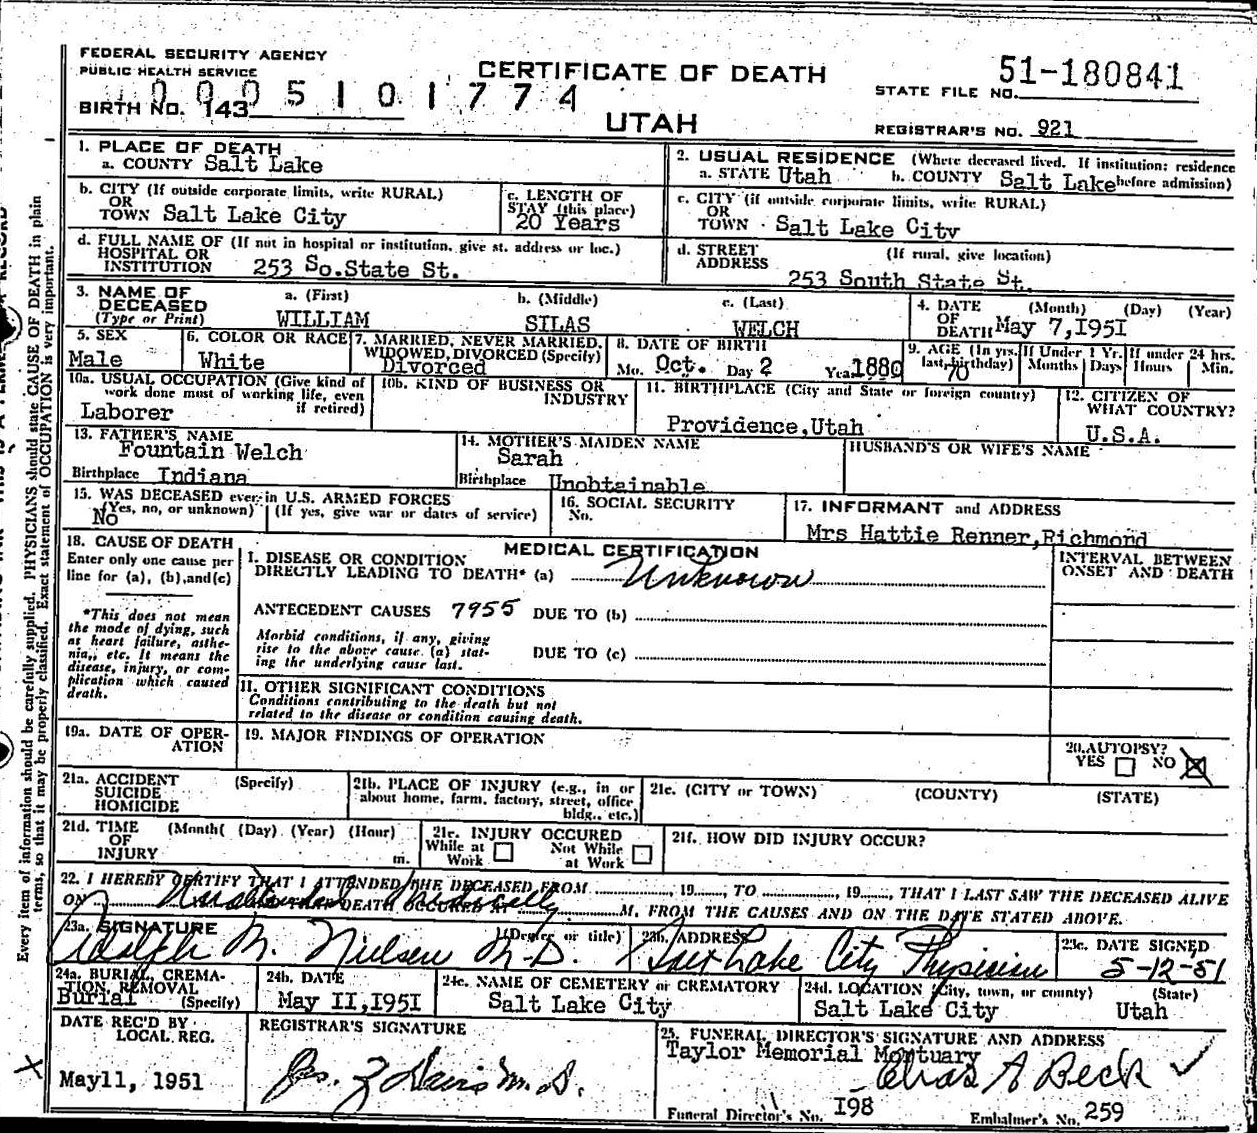 FEDERAL SECURITY AGENCY
PUBLIC HEALTH SERVICE
CERTIFICATE OF DEATH
UTAH
STATE FILE NO. 51-180841
0005101774
BIRTH NO. 143
REGISTRAR'S NO. 921
1. PLACE OF DEATH
a. COUNTY Salt Lake
2. USUAL RESIDENCE (Where deceased lived. If institution: residence before admission)
a. STATE Utah b. COUNTY Salt Lake
b. CITY (If outside corporate limits, write RURAL)
OR
TOWN Salt Lake City
c. LENGTH OF
STAY (this place)
20 Years
c. CITY (if outside corporate limits, write RURAL)
OR
TOWN Salt Lake City
d. FULL NAME OF (If not in hospital or institution, give st. address or loc.)
HOSPITAL OR
INSTITUTION 253 So.State St.
d. STREET
ADDRESS
(If rural, give location)
253 South State St.
3. NAME OF
DECEASED
(Type or Print)
a. (First) b. (Middle) c. (Last)
WILLIAM SILAS WELCH
4. DATE
OF
DEATH
(Month) (Day) (Year)
May 7,1951
5. SEX
Male
6. COLOR OR RACE
White
7. MARRIED, NEVER MARRIED,
WIDOWED, DIVORCED (Specify)
Divorced
8. DATE OF BIRTH
Mo. Oct. Day 2 Year 1880
9. AGE (In yrs. last birthday)
70
If Under 1 Yr.
Months Days
If under 24 hrs.
Hours Min.
10a. USUAL OCCUPATION (Give kind of
work done most of working life, even
if retired)
Laborer
10b. KIND OF BUSINESS OR
INDUSTRY
11. BIRTHPLACE (City and State or foreign country)
Providence,Utah
12. CITIZEN OF
WHAT COUNTRY?
U.S.A.
13. FATHER'S NAME
Fountain Welch
Birthplace Indiana
14. MOTHER'S MAIDEN NAME
Sarah
Birthplace Unobtainable
HUSBAND'S OR WIFE'S NAME
15. WAS DECEASED ever in U.S. ARMED FORCES
(Yes, no, or unknown) (If yes, give war or dates of service)
No
16. SOCIAL SECURITY
No.
17. INFORMANT and ADDRESS
Mrs Hattie Renner,Richmond
18. CAUSE OF DEATH
Enter only one cause per
line for (a), (b),and(c)
*This does not mean
the mode of dying, such
as heart failure, asthe-
nia,, etc. It means the
disease, injury, or com-
plication which caused
death.
MEDICAL CERTIFICATION
I. DISEASE OR CONDITION
DIRECTLY LEADING TO DEATH* (a) Unknown
ANTECEDENT CAUSES 7955 DUE TO (b)
Morbid conditions, if any, giving
rise to the above cause (a) stat-
ing the underlying cause last.
DUE TO (c)
11. OTHER SIGNIFICANT CONDITIONS
Conditions contributing to the death but not
related to the disease or condition causing death.
INTERVAL BETWEEN
ONSET AND DEATH
19a. DATE OF OPER-
ATION
19. MAJOR FINDINGS OF OPERATION
20. AUTOPSY?
YES NO X
21a. ACCIDENT
SUICIDE
HOMICIDE
(Specify)
21b. PLACE OF INJURY (e.g., in or
about home, farm, factory, street, office
bldg., etc.)
21c. (CITY or TOWN) (COUNTY) (STATE)
21d. TIME
OF
INJURY
(Month( (Day) (Year) (Hour)
m.
21e. INJURY OCCURED
While at
Work
Not While
at Work
21f. HOW DID INJURY OCCUR?
22. I HEREBY CERTIFY THAT I ATTENDED THE DECEASED FROM 19 , TO 19 , THAT I LAST SAW THE DECEASED ALIVE
ON THAT DEATH OCCURED AT M, FROM THE CAUSES AND ON THE DATE STATED ABOVE.
23a. SIGNATURE (Degree or title)
Adolph M. Nielsen M.D.
23b. ADDRESS
Salt Lake City Physician
23c. DATE SIGNED
5-12-51
24a. BURIAL, CREMA-
TION, REMOVAL
Burial (Specify)
24b. DATE
May 11,1951
24c. NAME OF CEMETERY or CREMATORY
Salt Lake City
24d. LOCATION (City, town, or county) (State)
Salt Lake City Utah
DATE REC'D BY
LOCAL REG.
May11, 1951
REGISTRAR'S SIGNATURE
25. FUNERAL DIRECTOR'S SIGNATURE AND ADDRESS
Taylor Memorial Mortuary
Chas A Beck
Funeral Director's No. 198 Embalmer's No. 259
Every item of information should be carefully supplied. PHYSICIANS should state CAUSE OF DEATH in plain
terms, so that it may be properly classified. Exact statement of OCCUPATION is very important.